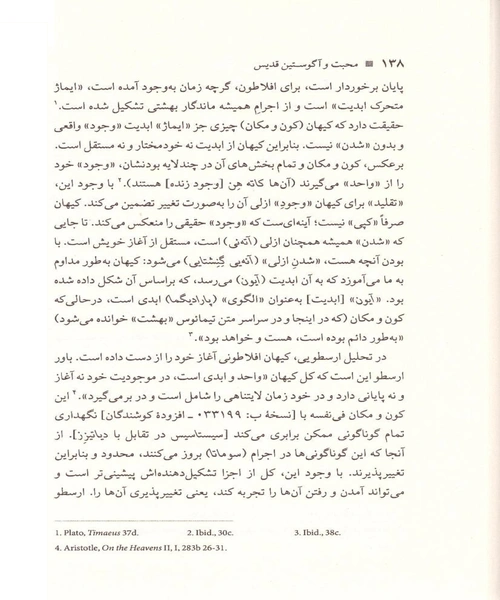 ۱۳۸ ■ محبت و آگوستین قدیس
پایان برخوردار است، برای افلاطون، گرچه زمان به‌وجود آمده است، «ایماژ
متحرک ابدیت» است و از اجرام همیشه ماندگار بهشتی تشکیل شده است.۱
حقیقت دارد که کیهان (کون و مکان) چیزی جز «ایماژ» ابدیت «وجود» واقعی
و بدون «شدن» نیست. بنابراین کیهان از ابدیت نه خودمختار و نه مستقل است.
برعکس، کون و مکان و تمام بخش‌های آن در چندلایه بودنشان، «وجود» خود
را از «واحد» می‌گیرند (آن‌ها کاته هِن [وجود زنده] هستند).۲ با وجود این،
«تقلید» برای کیهان «وجودِ» ازلی آن را به‌صورت تغییر تضمین می‌کند. کیهان
صرفاً «کپی» نیست؛ آینه‌ای‌ست که «وجود» حقیقی را منعکس می‌کند. تا جایی
که «شدن» همیشه همچنان ازلی (آئه‌نی) است، مستقل از آغاز خویش است. با
بودن آنچه هست، «شدنِ ازلی» (آئه‌یی گِنِشتایی) می‌شود: کیهان به‌طور مداوم
به ما می‌آموزد که به آن ابدیت (آیون) می‌رسد، که براساس آن شکل داده شده
بود. «آیون» [ابدیت] به‌عنوان «الگوی» (پارادیگما) ابدی است، درحالی‌که
کون و مکان (که در اینجا و در سراسر متن تیمائوس «بهشت» خوانده می‌شود)
«به‌طور دائم بوده است، هست و خواهد بود».۳
در تحلیل ارسطویی، کیهان افلاطونی آغاز خود را از دست داده است. باور
ارسطو این است که کل کیهان «واحد و ابدی است، در موجودیت خود نه آغاز
و نه پایانی دارد و در خود زمان لایتناهی را شامل است و در بر می‌گیرد».۴ این
کون و مکان فی‌نفسه با [نسخهٔ ب: ۰۳۳۱۹۹ ـ افزودهٔ کوشندگان] نگهداری
تمام گوناگونی ممکن برابری می‌کند [سیستاسیس در تقابل با دیاتیزز]. از
آنجا که این گوناگونی‌ها در اجرام (سوماتا) بروز می‌کنند، محدود و بنابراین
تغییرپذیرند. با وجود این، کل از اجزا تشکیل‌دهنده‌اش پیشینی‌تر است و
می‌تواند آمدن و رفتن آن‌ها را تجربه کند، یعنی تغییرپذیری آن‌ها را. ارسطو
1. Plato, Timaeus 37d. 2. Ibid., 30c. 3. Ibid., 38c.
4. Aristotle, On the Heavens II, I, 283b 26-31.